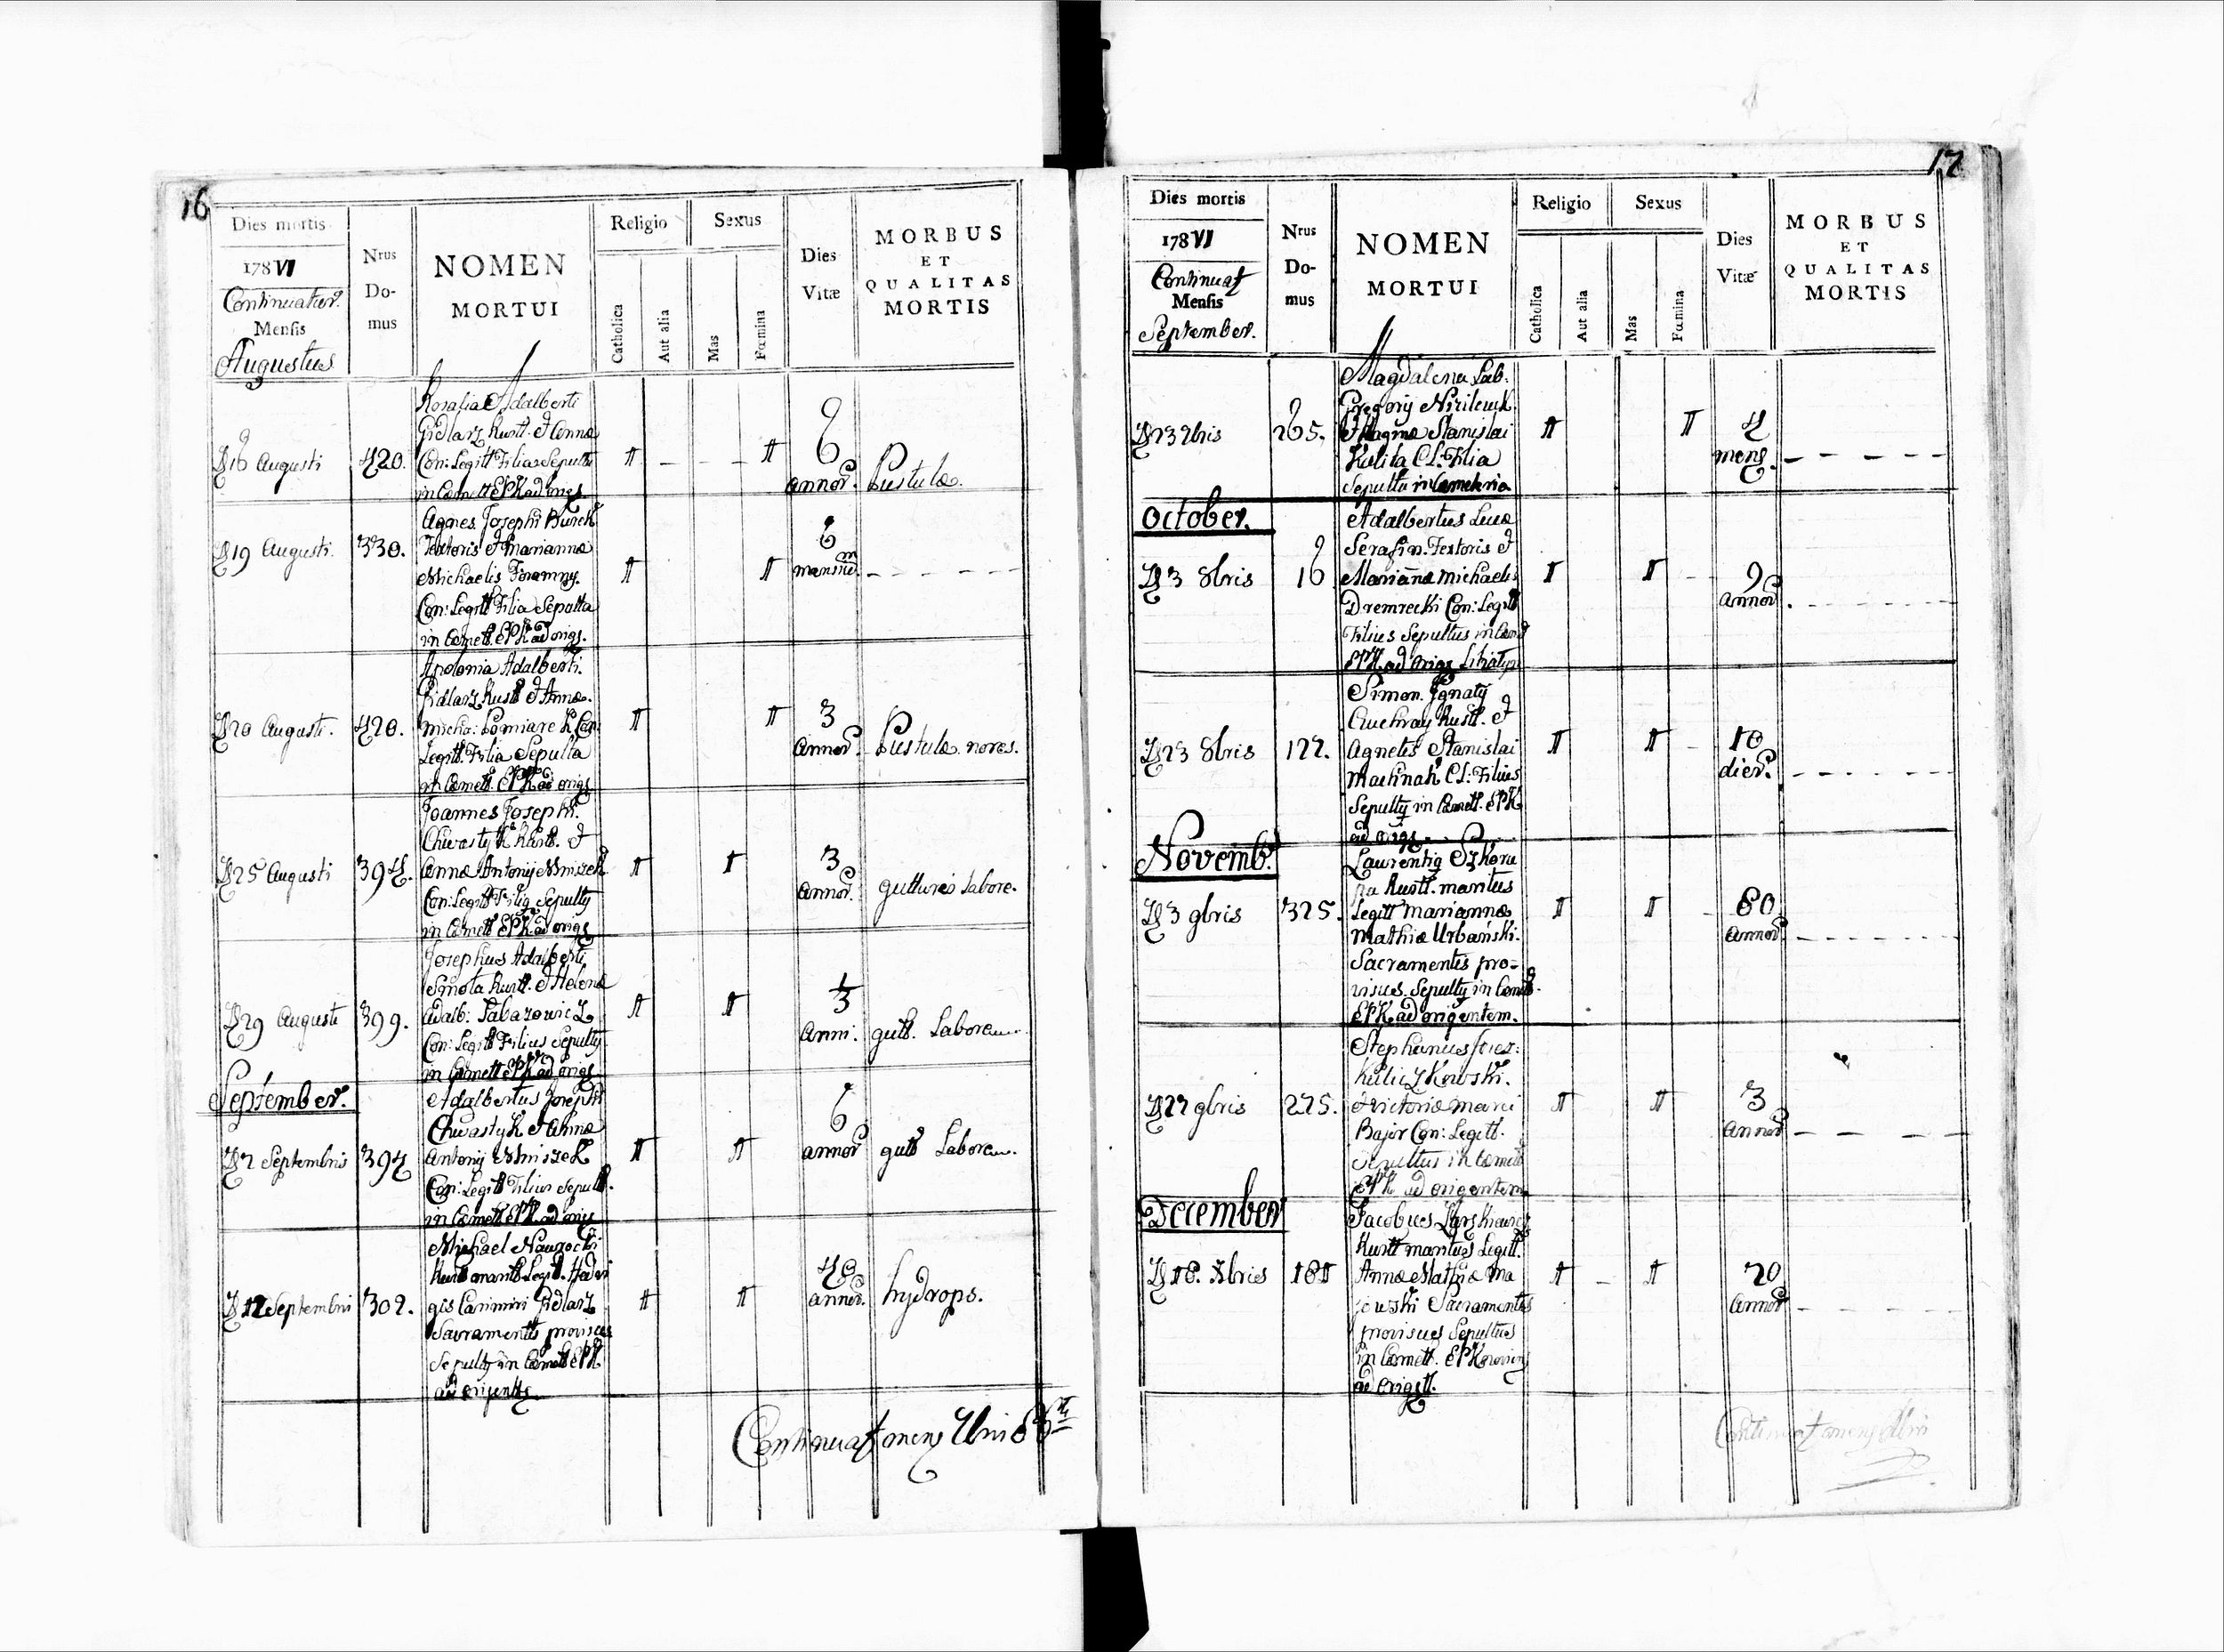 16
Dies mortis
178VI
Continuatur.
Mensis
Augustus
Nrus
Do-
mus
NOMEN
MORTUI
Religio
Catholica
Aut alia
Sexus
Mas
Fœmina
Dies
Vitæ
MORBUS
ET
QUALITAS
MORTIS
16 Augusti
420.
Rosalia Adalberti
Gidlarz Rustt. et Annæ
Con: Legitt Filia Sepulta
in Cæmett EPK ad origs
6
annor.
Pustulæ.
19 Augusti.
330.
Agnes Josephi Burek
Textoris et Mariannæ
Michaelis
Con: Legitt Filia Sepulta
in Cæmett. EPK ad origs.
6
mensiu
20 Augusti.
420.
Apolonia Adalberti.
Gidlarz Rustt et Annæ.
Micha: Con:
Legitt. Filia Sepulta
in Cæmett. EPK ad origs
3
Annor.
Pustulæ nores.
25 Augusti
394.
Joannes Josephi.
Chwastyk Rustt. et
Annæ Antonij Mniszek
Con: Legitt Filig Sepultg
in Cæmett EPK ad origs
3
Annor.
gutturis labore.
29 Augusti
399.
Josephus Adalberti
Smota Rustt. et Helenæ
Adalb: Tabazowicz
Con: Legitt Filius Sepultg
in Cæmett EPK ad origs
1/3
Anni.
gutt. Labore
September.
2 Septembris
394
Adalbertus Josephi
Chwastyk et Annæ
Antonij Mniszek
Con: Legitt Filius Sepult.
in Cæmett EPK ad origs
6
annor
gutt Labore
12 Septembris
302.
Michael Nawrocki
Rustt marit Legitt. Hedvi
gis Casimiri Gidlarz
Sacramentis provisus
Sepultg in Cæmett EPK
ad orijentt
40
annor.
hydrops.
Continuat mens 7bris 86
17
Dies mortis
178VI
Continuat
Mensis
September.
Nrus
Do-
mus
NOMEN
MORTUI
Religio
Catholica
Aut alia
Sexus
Mas
Fœmina
Dies
Vitæ
MORBUS
ET
QUALITAS
MORTIS
23 7bris
265.
Magdalena Lab.
Gregorij
Stanislai
Kulita CL: Filia
Sepulta in Cæmeterio
4
mens.
October.
3 8bris
16
Adalbertus Lucæ
Serafin. Textoris et
Mariannæ Michaelis
Con: Legitt
Filius Sepultus in Cæmet
EPK ad origs
9
annor.
23 8bris
122.
Simon. Ignatÿ
Rustt. et
Agnetis Stanislai
Machnak CL: Filius
Sepultg in Cæmett. EPK
ad origs.
10
dier.
Novemb.
3 9bris
325.
Laurentig
Rustt. maritus
Legitt Mariannæ
Mathiæ Urbański.
Sacramentis pro=
visus. Sepultg in Cæmett.
EPK ad origentem.
60
annor
22 9bris
225.
Stephanus
Kuliczkowski.
et Victoriæ
Bajor Con: Legitt.
Sepultus in Cæmett
EPK ad origentem
3
Annor
December
18. Xbris
181
Jacobus
Rustt maritus Legitt.
Annæ Mathiæ Ma
jewski Sacramentis
provisus Sepultus
in Cæmett.
ad Origtt.
70
Annor
Continuat mens